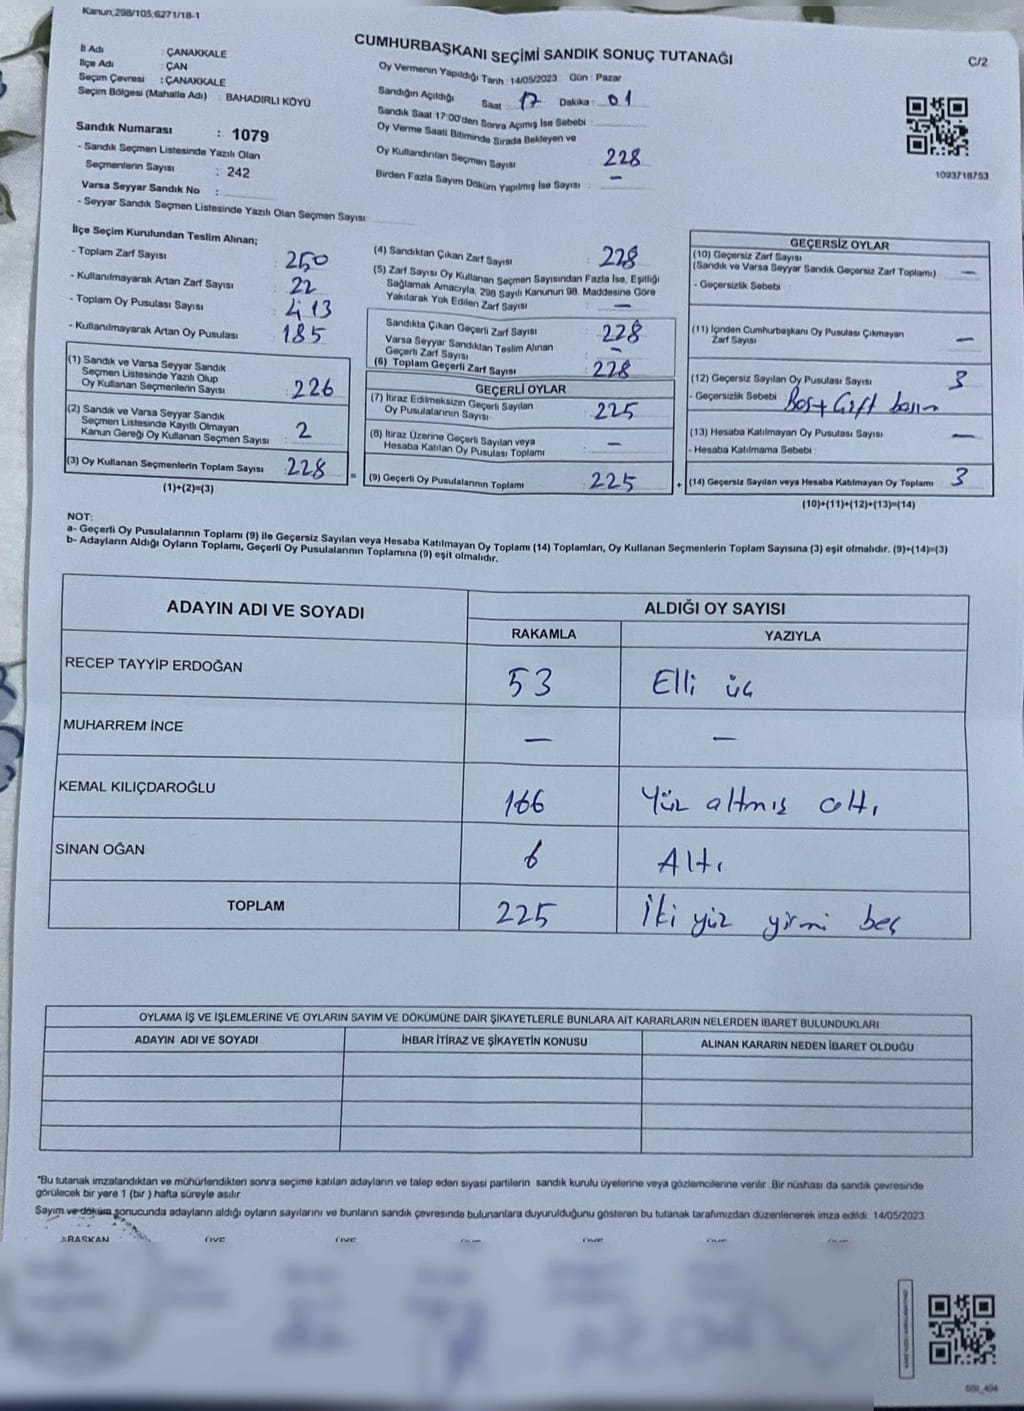 Kanun;298/105;6271/18-1
CUMHURBAŞKANI SEÇİMİ SANDIK SONUÇ TUTANAĞI
C/2
İl Adı : ÇANAKKALE
İlçe Adı : ÇAN
Seçim Çevresi : ÇANAKKALE
Seçim Bölgesi (Mahalle Adı) : BAHADIRLI KÖYÜ
Sandık Numarası : 1079
- Sandık Seçmen Listesinde Yazılı Olan
Seçmenlerin Sayısı : 242
Varsa Seyyar Sandık No :
- Seyyar Sandık Seçmen Listesinde Yazılı Olan Seçmen Sayısı:
Oy Vermenin Yapıldığı Tarih :14/05/2023 Gün : Pazar
Sandığın Açıldığı Saat : 17 Dakika : 01
Sandık Saat 17:00'den Sonra Açımış İse Sebebi :
Oy Verme Saati Bitiminde Sırada Bekleyen ve
Oy Kullandırılan Seçmen Sayısı : 228
Birden Fazla Sayım Döküm Yapılmış İse Sayısı : —
1093718753
İlçe Seçim Kurulundan Teslim Alınan;
- Toplam Zarf Sayısı : 250
- Kullanılmayarak Artan Zarf Sayısı : 22
- Toplam Oy Pusulası Sayısı : 413
- Kullanılmayarak Artan Oy Pusulası : 185
(1) Sandık ve Varsa Seyyar Sandık
Seçmen Listesinde Yazılı Olup
Oy Kullanan Seçmenlerin Sayısı : 226
(2) Sandık ve Varsa Seyyar Sandık
Seçmen Listesinde Kayıtlı Olmayan
Kanun Gereği Oy Kullanan Seçmen Sayısı : 2
(3) Oy Kullanan Seçmenlerin Toplam Sayısı : 228
(1)+(2)=(3)
(4) Sandıktan Çıkan Zarf Sayısı : 228
(5) Zarf Sayısı Oy Kullanan Seçmen Sayısından Fazla İse, Eşitliği
Sağlamak Amacıyla, 298 Sayılı Kanunun 98. Maddesine Göre
Yakılarak Yok Edilen Zarf Sayısı : —
Sandıkta Çıkan Geçerli Zarf Sayısı : 228
Varsa Seyyar Sandıktan Teslim Alınan
Geçerli Zarf Sayısı : —
(6) Toplam Geçerli Zarf Sayısı : 228
GEÇERLİ OYLAR
(7) İtiraz Edilmeksizin Geçerli Sayılan
Oy Pusulalarının Sayısı : 225
(8) İtiraz Üzerine Geçerli Sayılan veya
Hesaba Katılan Oy Pusulası Toplamı : —
= (9) Geçerli Oy Pusulalarının Toplamı : 225
GEÇERSİZ OYLAR
(10) Geçersiz Zarf Sayısı
(Sandık ve Varsa Seyyar Sandık Geçersiz Zarf Toplamı) —
- Geçersizlik Sebebi :
(11) İçinden Cumhurbaşkanı Oy Pusulası Çıkmayan
Zarf Sayısı —
(12) Geçersiz Sayılan Oy Pusulası Sayısı 3
- Geçersizlik Sebebi Boş + Çift basım
(13) Hesaba Katılmayan Oy Pusulası Sayısı —
- Hesaba Katılmama Sebebi :
+ (14) Geçersiz Sayılan veya Hesaba Katılmayan Oy Toplamı 3
(10)+(11)+(12)+(13)=(14)
NOT:
a- Geçerli Oy Pusulalarının Toplamı (9) ile Geçersiz Sayılan veya Hesaba Katılmayan Oy Toplamı (14) Toplamları, Oy Kullanan Seçmenlerin Toplam Sayısına (3) eşit olmalıdır. (9)+(14)=(3)
b- Adayların Aldığı Oyların Toplamı, Geçerli Oy Pusulalarının Toplamına (9) eşit olmalıdır.
ADAYIN ADI VE SOYADI ALDIĞI OY SAYISI
RAKAMLA YAZIYLA
RECEP TAYYİP ERDOĞAN 53 Elli üç
MUHARREM İNCE — —
KEMAL KILIÇDAROĞLU 166 Yüz altmış altı
SİNAN OĞAN 6 Altı
TOPLAM 225 İki yüz yirmi beş
OYLAMA İŞ VE İŞLEMLERİNE VE OYLARIN SAYIM VE DÖKÜMÜNE DAİR ŞİKAYETLERLE BUNLARA AİT KARARLARIN NELERDEN İBARET BULUNDUKLARI
ADAYIN ADI VE SOYADI İHBAR İTİRAZ VE ŞİKAYETİN KONUSU ALINAN KARARIN NEDEN İBARET OLDUĞU
"Bu tutanak imzalandıktan ve mühürlendikten sonra seçime katılan adayların ve talep eden siyasi partilerin sandık kurulu üyelerine veya gözlemcilerine verilir. Bir nüshası da sandık çevresinde
görülecek bir yere 1 (bir ) hafta süreyle asılır
Sayım ve döküm sonucunda adayların aldığı oyların sayılarını ve bunların sandık çevresinde bulunanlara duyurulduğunu gösteren bu tutanak tarafımızdan düzenlenerek imza edildi. 14/05/2023
BAŞKAN ÜYE ÜYE ÜYE